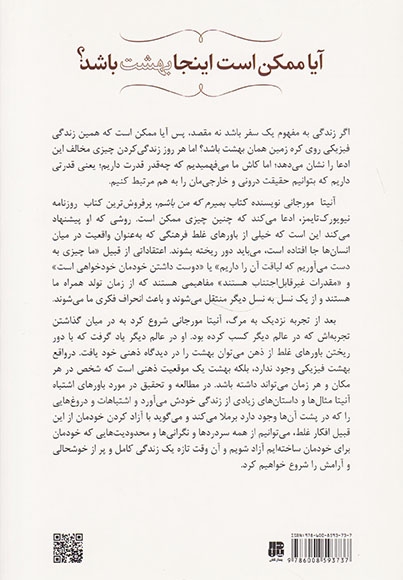 آیا ممکن است اینجا بهشت باشد؟
اگر زندگی به مفهوم یک سفر باشد نه مقصد، پس آیا ممکن است که همین زندگی
فیزیکی روی کره زمین همان بهشت باشد؟ اما هر روز زندگی‌کردن چیزی مخالف این
ادعا را نشان می‌دهد؛ اما کاش ما می‌فهمیدیم که چه‌قدر قدرت داریم؛ یعنی قدرتی
داریم که بتوانیم حقیقت درونی و خارجی‌مان را به هم مرتبط کنیم.
آنیتا مورجانی نویسنده کتاب بمیرم که من باشم، پرفروش‌ترین کتاب روزنامه
نیویورک‌تایمز، ادعا می‌کند که چنین چیزی ممکن است. روشی که او پیشنهاد
می‌کند این است که خیلی از باورهای غلط فرهنگی که به‌عنوان واقعیت در میان
انسان‌ها جا افتاده است، می‌باید دور ریخته بشوند. اعتقاداتی از قبیل «ما چیزی به
دست می‌آوریم که لیاقت آن را داریم» یا «دوست داشتن خودمان خودخواهی است»
و «مقدرات غیرقابل‌اجتناب هستند» مفاهیمی هستند که از زمان تولد همراه ما
هستند و از یک نسل به نسل دیگر منتقل می‌شوند و باعث انحراف فکری ما می‌شوند.
بعد از تجربه نزدیک به مرگ، آنیتا مورجانی شروع کرد به در میان گذاشتن
تجربه‌اش که در عالم دیگر کسب کرده بود. او در عالم دیگر یاد گرفت که با دور
ریختن باورهای غلط از ذهن می‌توان بهشت را در دیدگاه ذهنی خود یافت. درواقع
بهشت فیزیکی وجود ندارد، بلکه بهشت یک موقعیت ذهنی است که شخص در هر
مکان و هر زمان می‌تواند داشته باشد. در مطالعه و تحقیق در مورد باورهای اشتباه
آنیتا مثال‌ها و داستان‌های زیادی از زندگی خودش می‌آورد و اشتباهات و دروغ‌هایی
را که در پشت آن‌ها وجود دارد برملا می‌کند و می‌گوید با آزاد کردن خودمان از این
قبیل افکار غلط، می‌توانیم از همه سردردها و نگرانی‌ها و محدودیت‌هایی که خودمان
برای خودمان ساخته‌ایم آزاد شویم و آن وقت تازه یک زندگی کامل و پر از خوشحالی
و آرامش را شروع خواهیم کرد.
ISBN: 978-600-8593-73-7
9 786008 593737